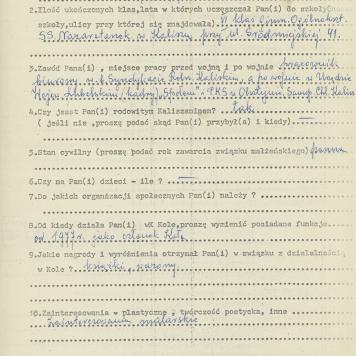 2.Ilość ukończonych klas,lata w których uczęszczał Pan(i) do szkoły
szkoły,ulicy przy której się znajdowała). VI klas Gimn. Ogólnokszt.
SS. Nazaretanek w Kaliszu przy ul. Śródmiejskiej 41.
3.Zawód Pana(i) , miejsce pracy przed wojną i po wojnie pracownik
biurowy w f. Syndykacie Roln. Kaliskim, a po wojnie w Urzędzie
Wojew. (kadry) „Społem" i PKS w Kalisz
4.Czy jest Pan(i) rodowitym Kaliszaninem? . tak
( jeśli nie ,proszę podać skąd Pan(i) przybył(a) i kiedy) —
5.Stan cywilny (proszę podać rok zawarcia związku małżeńskiego) panna
6.Czy ma Pan(i) dzieci - ile ? —
7.Do jakich organizacji społecznych Pan(i) należy ?
8.Od kiedy działa Pan(i) wK Kole,proszę wymienić posiadane funkcje
od 1977 r. jako członek Koła
9.Jakie nagrody i wyróżnienia otrzymał Pan(i) w związku z działalnością
w Kole ? książki, wazony
10.Zainteresowania - plastyczne , twórczość poetycka, inne
Zainteresowania malarskie